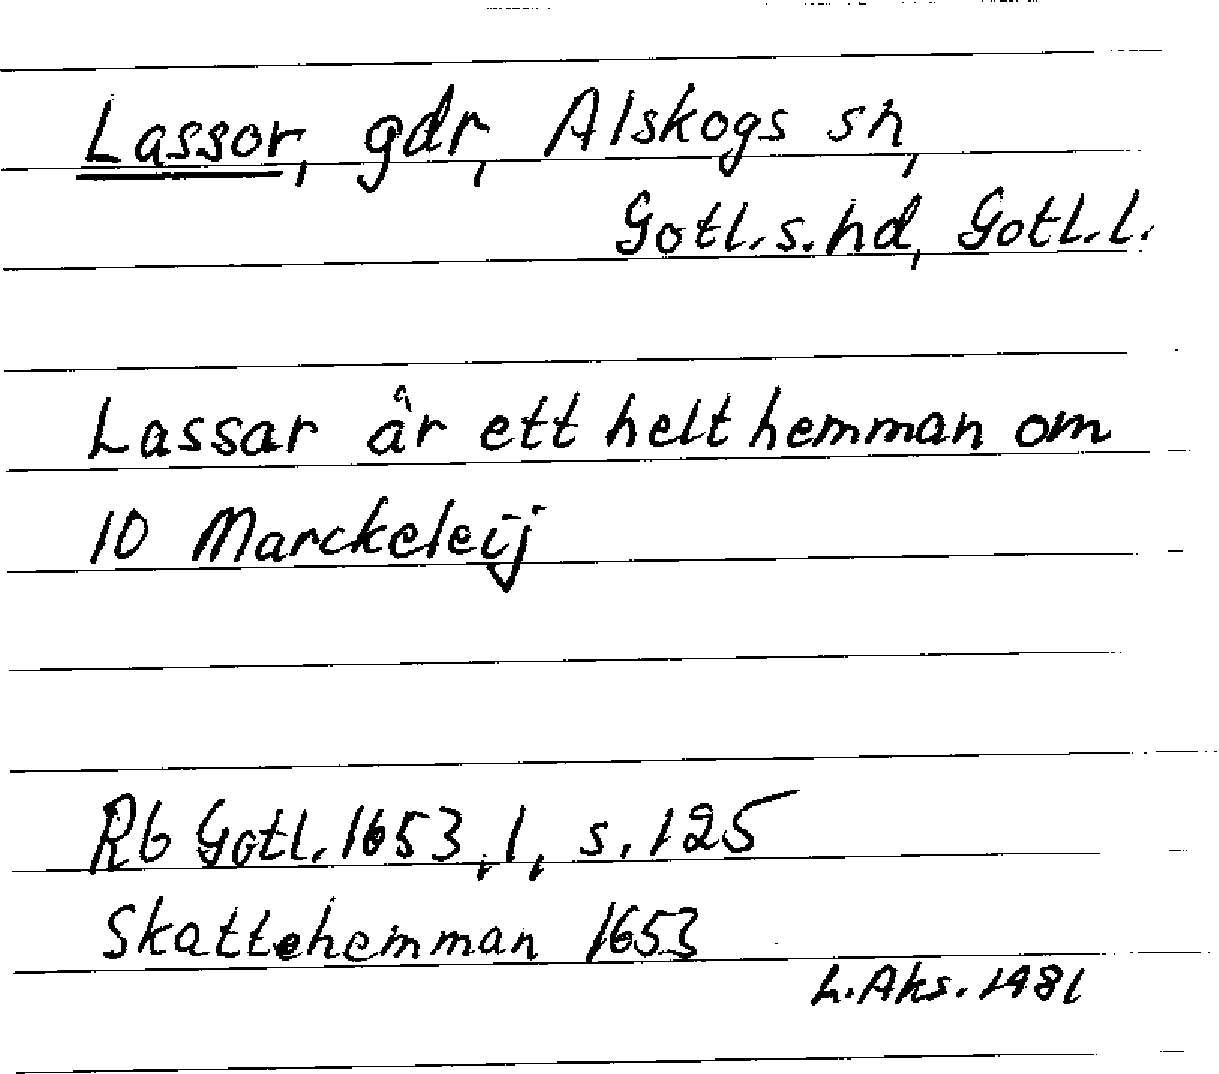 Lassor, gdr, Alskogs sn,
Gotl.s.hd, Gotl.l.
Lassar år ett helt hemman om
10 Marckeleij
Rb Gotl. 1653, 1, s. 125
Skattehemman 1653
L.Aks. 1981